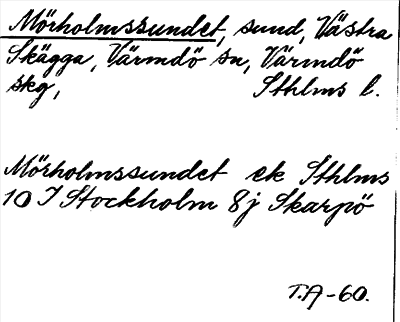 Mörholmssundet, sund, Västra
Skägga, Värmdö sn, Värmdö
skg, Sthlms l.
Mörholmssundet ek Sthlms
10 I Stockholm 8j Skarpö
T.A-60.